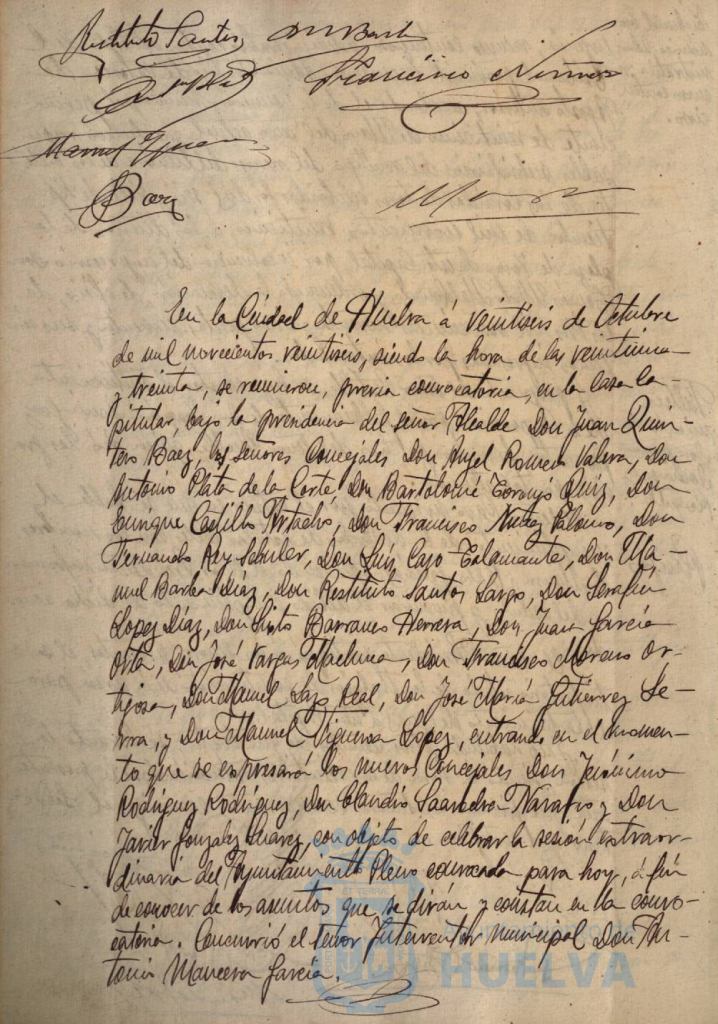 Restituto Santos M Barba
Francisco Núñez
Manuel Figueroa
En la Ciudad de Huelva á veintiseis de Octubre
de mil novecientos veintiseis, siendo la hora de las veintiuna
y treinta, se reunieron, previa convocatoria, en la Casa Ca-
pitular, bajo la presidencia del señor Alcalde Don Juan Quin-
tero Baez, los señores Concejales Don Angel Romero Valera, Don
Antonio Plata de la Corte, Don Bartolomé Toronjo Ruiz, Don
Enrique Castillo Artacho, Don Francisco Nuñez Palomo, Don
Fernando Rey Schuler, Don Luis Cazo Talamante, Don Ma-
nuel Barba Diaz, Don Restituto Santos Largo, Don Serafin
Lopez Diaz, Don Sixto Barranco Herrera, Don Juan Garcia
Orta, Don José Vargas Machuca, Don Francisco Moreno Or-
tijosa, Don Manuel Lazo Real, Don José Maria Gutiérrez Se-
rra, y Don Manuel Figueroa Lopez, entrando en el momen-
to que se expresará los nuevos Concejales Don Jerónimo
Rodriguez Rodriguez, Don Claudio Saavedra Navarro y Don
Javier Gonzalez Suarez, con objeto de celebrar la sesión extraor-
dinaria del Ayuntamiento Pleno convocada para hoy, á fin
de conocer de los asuntos que se dirán y constan en la convo-
catoria. Concurrió el señor Interventor municipal Don An-
tonio Mancera Garcia.
HUELVA